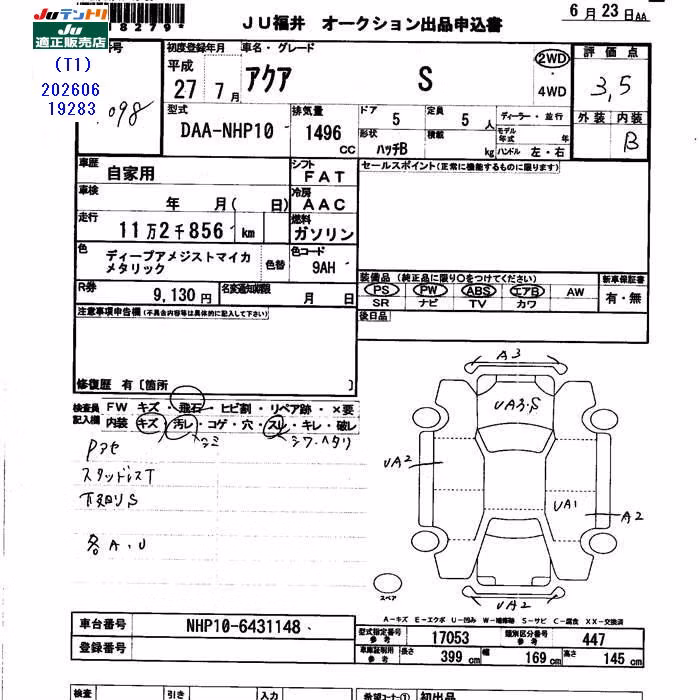 JUテントリ
JU
適正販売店
8279*
JU福井 オークション出品申込書
6月23日AA
(T1)
202606
19283
号
098
初度登録年月
平成
27 7月
車名・グレード
アクア S
2WD
・
4WD
評価点
3,5
外装 内装
B
型式
DAA-NHP10
排気量
1496
CC
ドア
5
定員
5人
形状
ハッチB
積載
kg
ディーラー・並行
モデル年式 年
ハンドル 左・右
車歴
自家用
シフト
FAT
セールスポイント(正常に機能するものに限ります)
車検
年 月(日)
冷房
AAC
走行
11万2千856 km
燃料
ガソリン
色
ディープアメジストマイカ
メタリック
色替
色コード
9AH
R券
9,130円
名変通知期限
月 日
装備品(純正品に限り○をつけてください)
PS PW ABS エアB AW
SR ナビ TV カワ
新車保証書
有・無
注意事項申告欄(不具合内容等は具体的に記入して下さい)
後日品
修復歴 有〔箇所 〕
検査員
記入欄
FW キズ・飛石・ヒビ割・リペア跡・×要
内装 キズ・汚レ・コゲ・穴・スレ・キレ・破レ
シミ シワ・ヘタリ
Pアセ
スタッドレスT
下回りS
各A、U
A3
UA3・S
UA2
UA1
A2
UA2
スペア
A-キズ E-エクボ U-凹み W-補修跡 S-サビ C-腐食 XX-交換済
車台番号
NHP10-6431148
登録番号
型式指定番号
参考
17053
類別区分番号
参考
447
車庫証明用
参考
長さ
399 cm
幅
169 cm
高さ
145 cm
検査
引き
入力
希望コーナー①
初出品